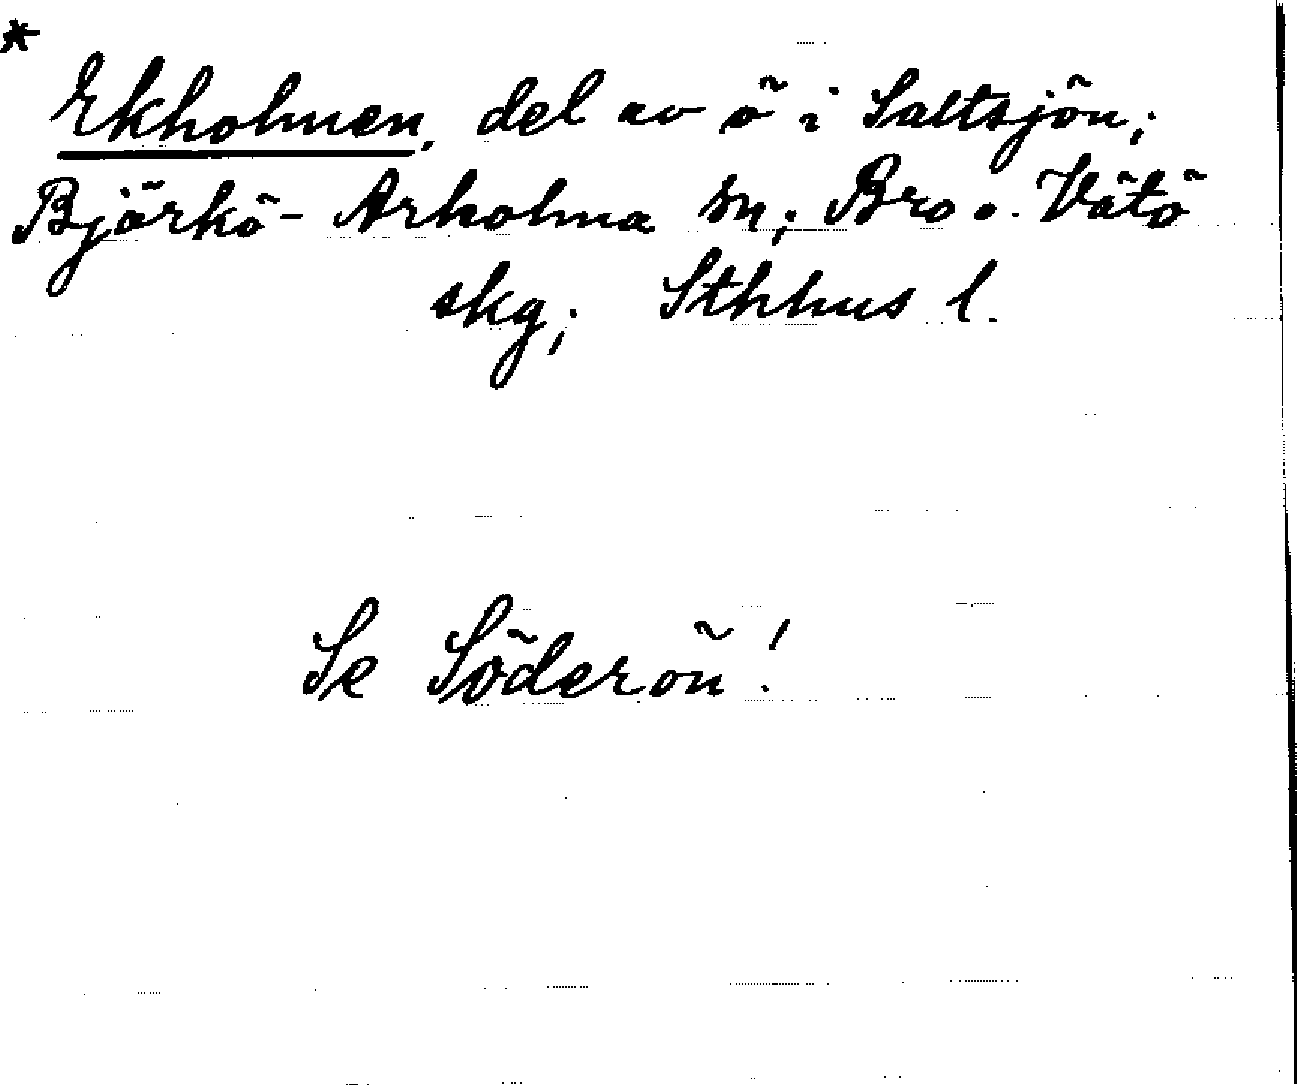 *
Ekholmen, del av ö i Saltsjön;
Björkö-Arholma sn; Bro o. Vätö
skg; Sthhus l.
Se Söderön!